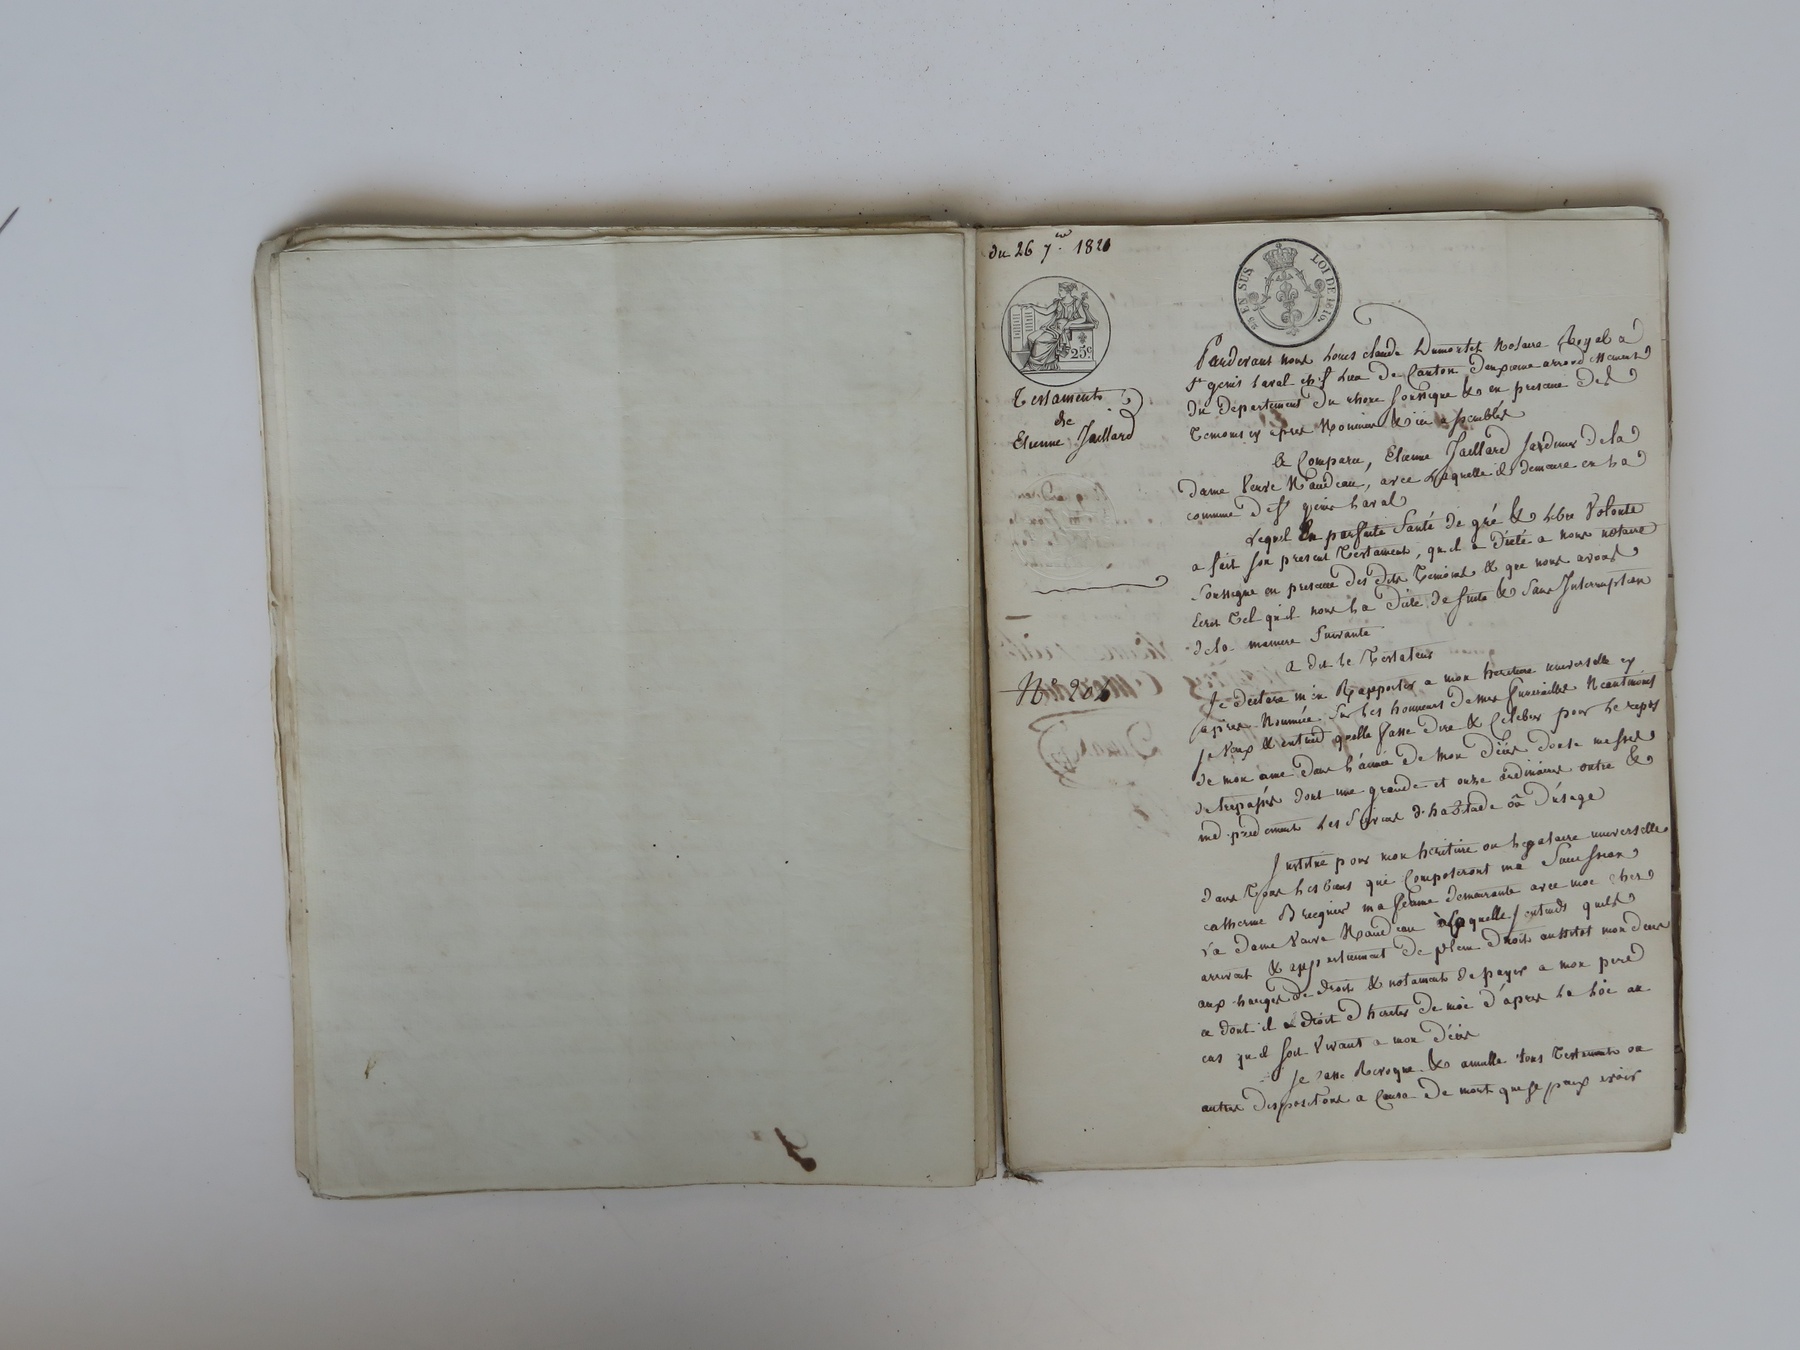 du 26 7bre 1821
25 EN SUS LOI DE 1816.
25c
Testament
de
Etienne Jaillard
Nº 205
Pardevant nous Louis Claude Dumortet Notaire Royal a
St genis Laval chef Lieu de Canton deuxieme arrondissement
du departement du rhone soussigné & en presence des
Temoins cy apres Nommés & ici assemblés
Est Comparu, Etienne Jaillard Jardinier de la
dame Veuve Naudeau, avec Laquelle il demeure en La
commune de St genis Laval
Lequel En parfaite Santé de gré & Libre Volonté
a fait son present Testament, qu'il a Dicté a nous notaire
soussigné en presence des dits Temoins & que nous avons
Ecrit Tel qu'il nous La Dicté de suite & Sans Interruption
de la maniere suivante
a dit le Testateur
Je declare m'en Rapporter a mon heritiere universelle cy
apres Nommée sur Les honneurs de mes funerailles Neantmoins
Je Veux & entend quelle fasse dire & Celebrer pour Le repos
de mon ame dans L'année de mon Décès douse messes
de trepassés dont une grande et onze ordinaires outre &
independament Les Services d'habitude ou D'usage
J institue pour mon heritiere ou Legataire universelle
dans Tous Les biens qui Composeront ma Succession
catherine Breynier ma femme demeurante avec moi chez
la dame Veuve Naudeau à laquelle J'entends quils
arrivent & appartiennent de plein droit aussitot mon deces
aux charges de droit & notament de payer a mon pere
ce dont il a droit d'heriter de moi d'après La Loi au
cas qu'il soit Vivant a mon Décès
Je Casse Revoque & annulle tous Testaments ou
autres dispositions a Cause de mort que Je peux avoir